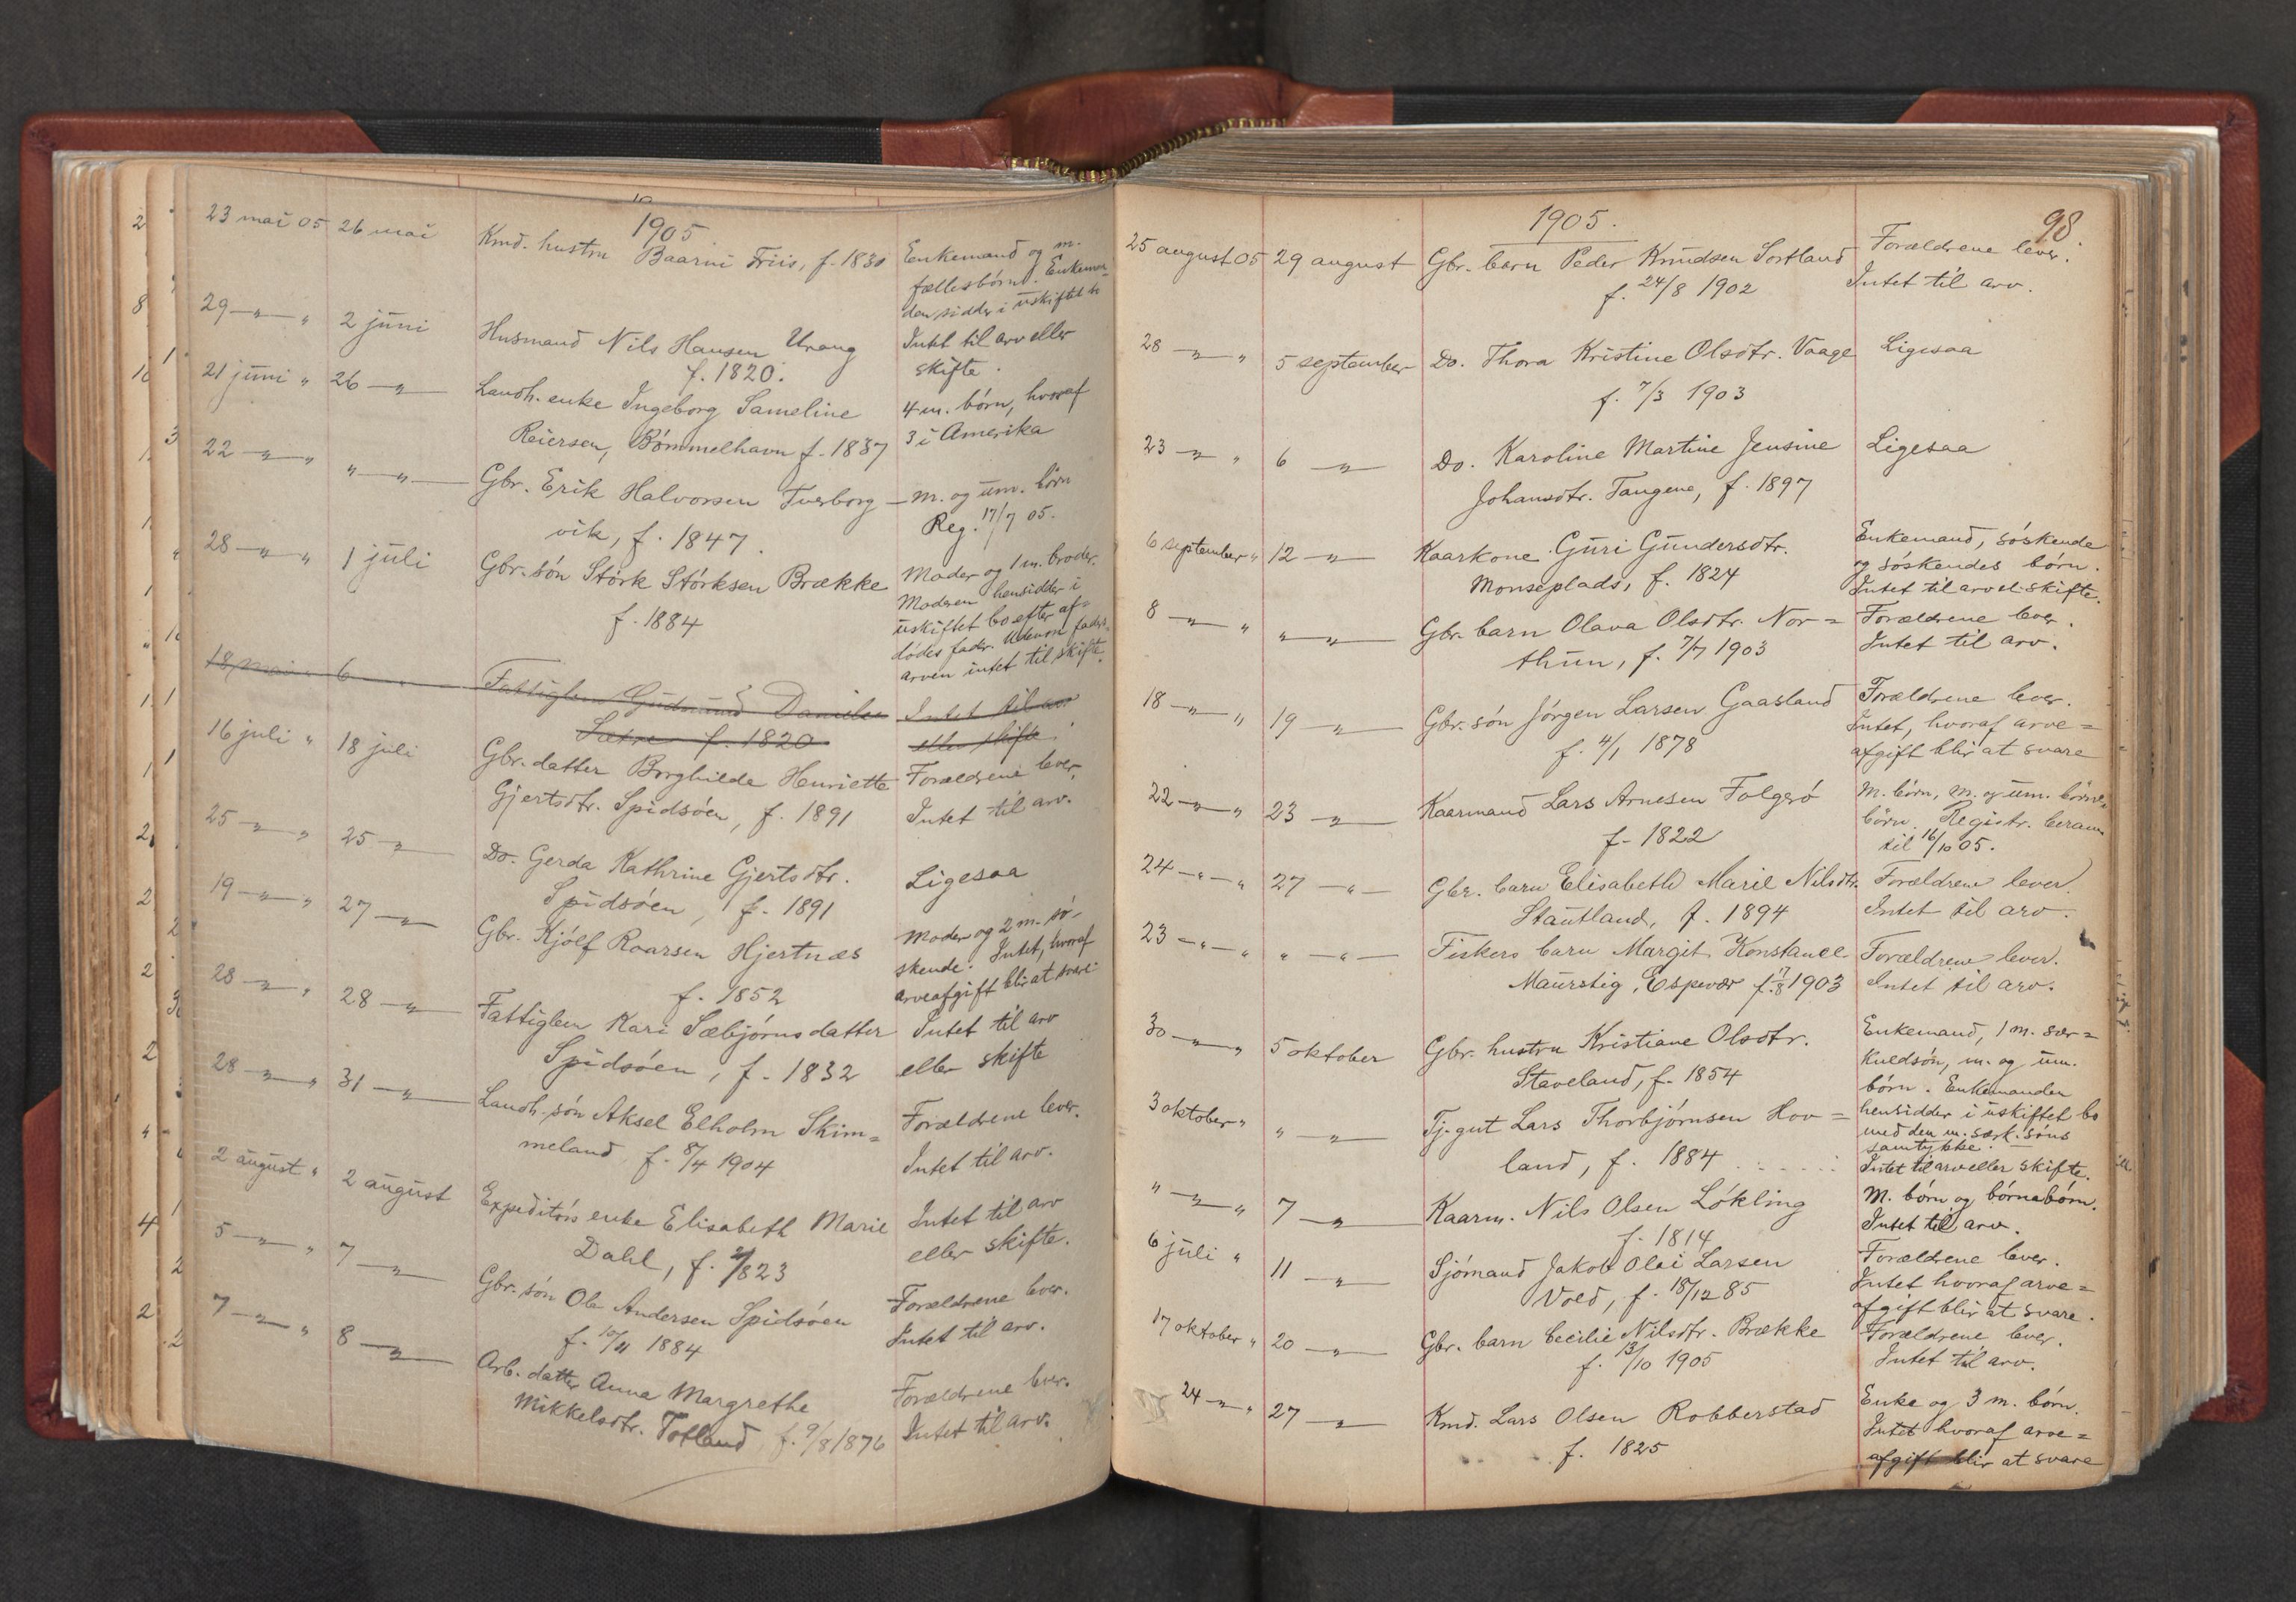 1905
23 mai 05 26 mai Kmd. hustru Baarni Friis, f. 1830 Enkemand og m.
fællesbørn. Enkeman-
den sidder i uskiftet bo
29 — " — " 2 juni Husmand Nils Hansen Urang Intet til arv eller
f. 1820. skifte.
21 juni " 26 — " — Landh. enke Ingeborg Sameline 4 m. børn, hvoraf
Reiersen, Bømmelhavn f. 1837 3 i Amerika
22 — " — " " — " — Gbr. Erik Halvorsen Tverborg — m. og um. børn
vik, f. 1847. Reg. 17/7 05.
28 — " — " 1 juli Gbr. søn Størk Størksen Brække Moder og 1 m. broder.
f. 1884 Moderen hensidder i
uskiftet bo efter af=
dødes fader. Udenom faders-
arven intet til skifte.
18 mai " 6 " Fattiglem Gudmund Danielsen Intet til arv
Sætre f. 1820 eller skifte.
16 juli " 18 juli Gbr. datter Borghilde Henriette Forældrene lever.
Gjertsdtr. Spidsøen, f. 1891 Intet til arv.
25 — " — " 25 — " — Do. Gerda Kathrine Gjertsdtr. Ligesaa
Spidsøen, f. 1891
19 — " — " 27 — " — Gbr. Kjølf Roarsen Hjertnæs Moder og 2 m. sø-
f. 1852 skende. Intet, hvoraf
arveafgift blir at svare
28 — " — " 28 — " — Fattiglem Kari Sæbjørnsdatter Intet til arv
Spidsøen, f. 1832 eller skifte
28 — " — " 31 — " — Landh. søn Aksel Elholm Skim= Forældrene lever.
meland f. 8/4 1904 Intet til arv.
2 august " 2 august Expeditørs enke Elisabeth Marie Intet til arv
Dahl, f. 1823 eller skifte.
5 — " — " 7 — " — Gbr. søn Ole Andersen Spidsøen Forældrene lever.
f. 10/11 1884 Intet til arv.
7 — " — " 8 — " — Arb. datter Anna Margrethe Forældrene lever.
Mikkelsdtr. Totland, f. 9/8 1876 Intet til arv.
1905. 98.
25 august 05 29 august Gbr. barn Peder Knudsen Sortland Forældrene lever.
f. 24/8 1902 Intet til arv.
28 — " — " 5 september Do. Thora Kristine Olsdtr. Vaage Ligesaa
f. 7/3 1903
23 — " — " 6 — " — Do. Karoline Martine Jensine Ligesaa
Johansdtr. Tangene, f. 1897
6 september " 12 — " — Kaarkone Guri Gundersdtr. Enkemand, søskende
Monseplads, f. 1824 og søskendes børn.
Intet til arv el. skifte.
8 — " — " " — " — Gbr. barn Olava Olsdtr. Nor = Forældrene lever.
thun, f. 7/7 1903 Intet til arv.
18 — " — " 19 — " — Gbr. søn Jørgen Larsen Gaasland Forældrene lever.
f. 4/1 1878 Intet, hvoraf arve=
afgift blir at svare
22 — " — " 23 — " — Kaarmand Lars Arnesen Folgerø M. børn, m. og um. børne-
f. 1822 børn. Registr. beram.
til 16/10 05.
24 — " — " 27 — " — Gbr. barn Elisabeth Marie Nilsdtr. Forældrene lever.
Stautland, f. 1894 Intet til arv.
23 — " — " " — " — Fiskers barn Margit Konstance Forældrene lever.
Maurstig, Espevær f. 7/8 1903 Intet til arv.
30 — " — " 5 oktober Gbr. hustru Kristiane Olsdtr. Enkemand, 1 m. sær=
Staveland, f. 1854 kuldsøn, m. og um.
børn. Enkemanden
hensidder i uskiftet bo
med den m. særk. søns
samtykke.
3 oktober " " — " — Tj. gut Lars Thorbjørnsen Hov =
land, f. 1884 Intet til arv eller skifte.
" — " — " 7 — " — Kaarm. Nils Olsen Løkling M. børn og børnebørn.
f. 1814 Intet til arv.
6 juli " 11 — " — Sjømand Jakob Olai Larsen Forældrene lever.
Vold, f. 18/12 85 Intet hvoraf arve=
afgift blir at svare.
17 oktober " 20 — " — Gbr. barn Cecilie Nilsdtr. Brække Forældrene lever.
f. 13/10 1905 Intet til arv.
24 — " — " 27 — " — Kmd. Lars Olsen Robberstad Enke og 3 m. børn.
f. 1825 Intet hvoraf arve=
afgift blir at svare